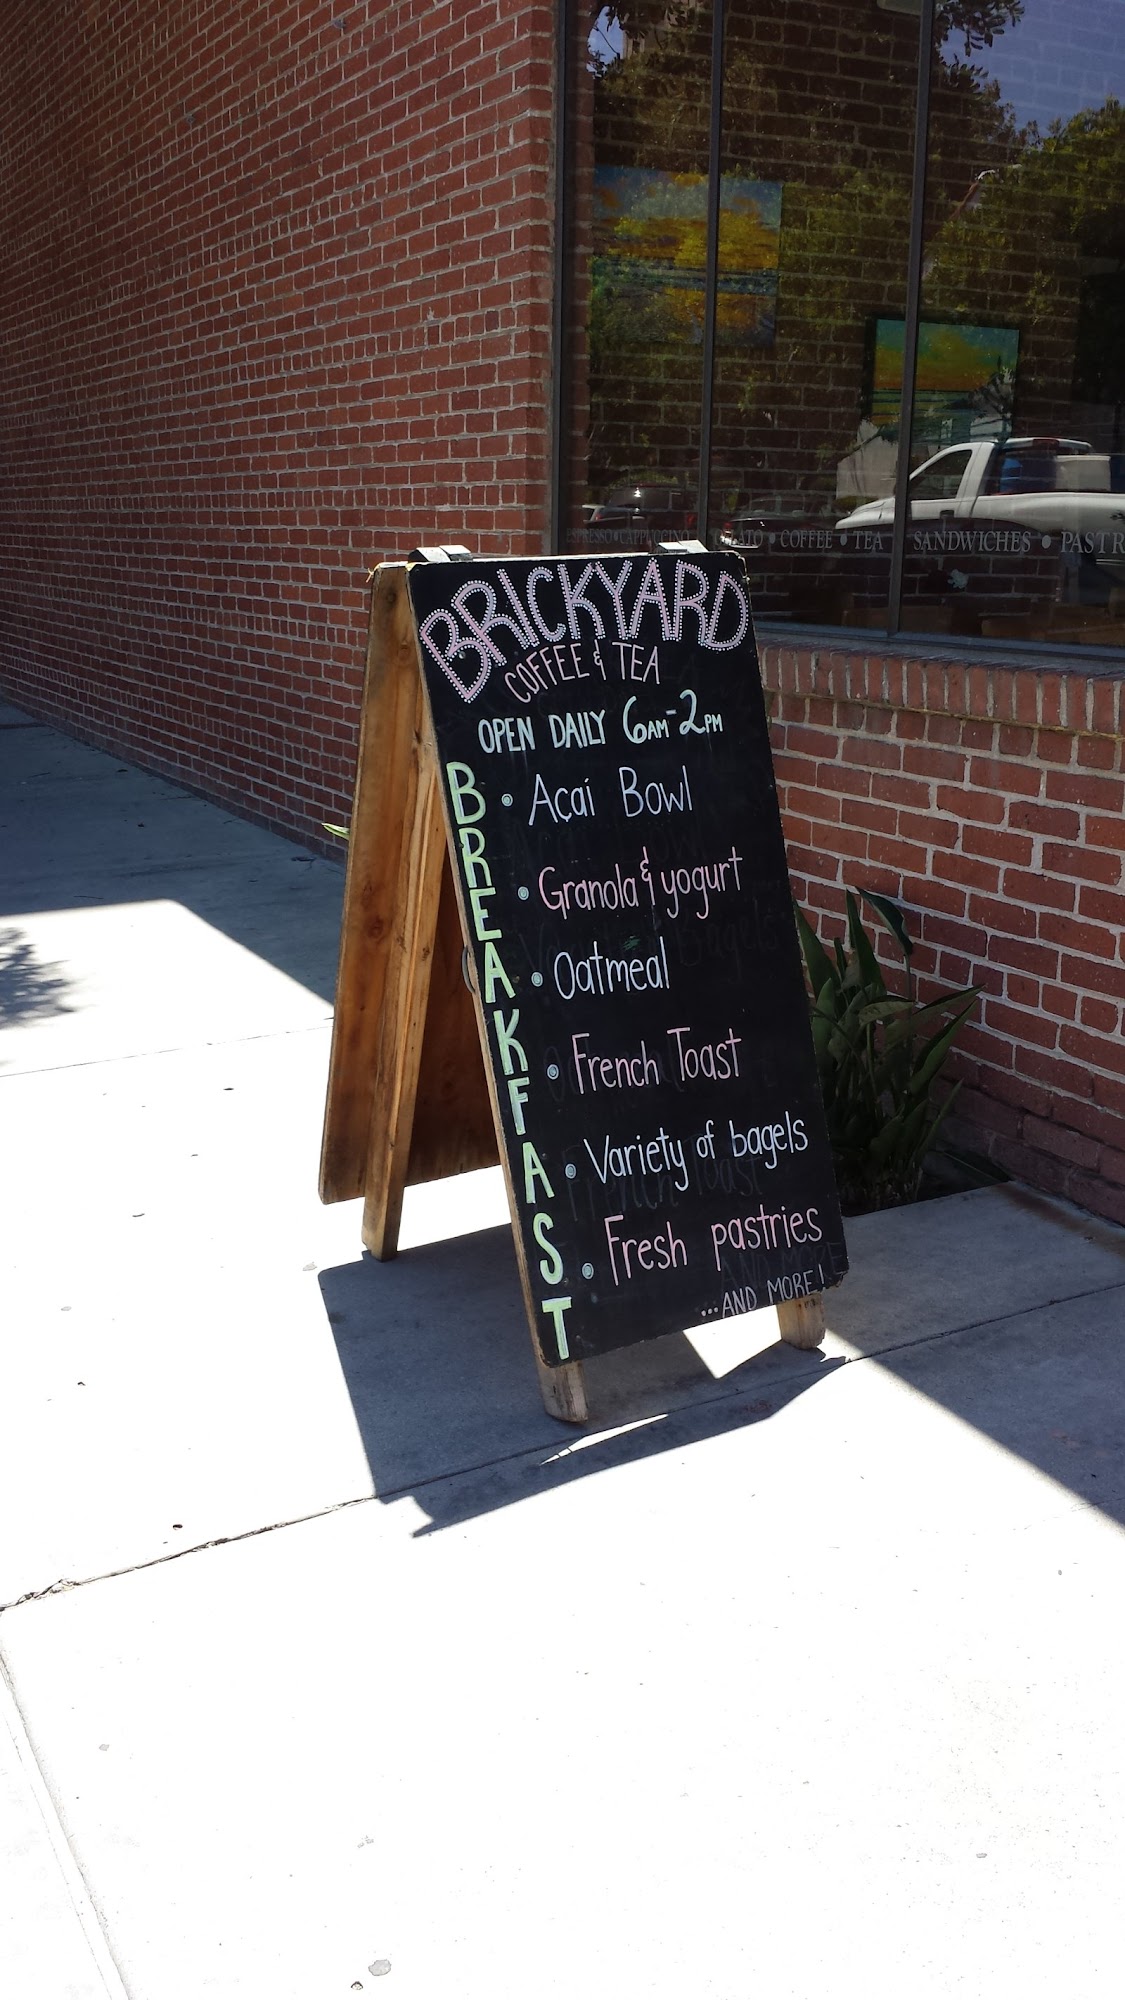 ESPRESSO • CAPPUCCINO • GELATO • COFFEE • TEA SANDWICHES • PASTR
BRICKYARD
COFFEE & TEA
OPEN DAILY 6AM-2PM
BREAKFAST
• Açaí Bowl
• Granola & yogurt
• Oatmeal
• French Toast
• Variety of bagels
• Fresh pastries
...AND MORE!